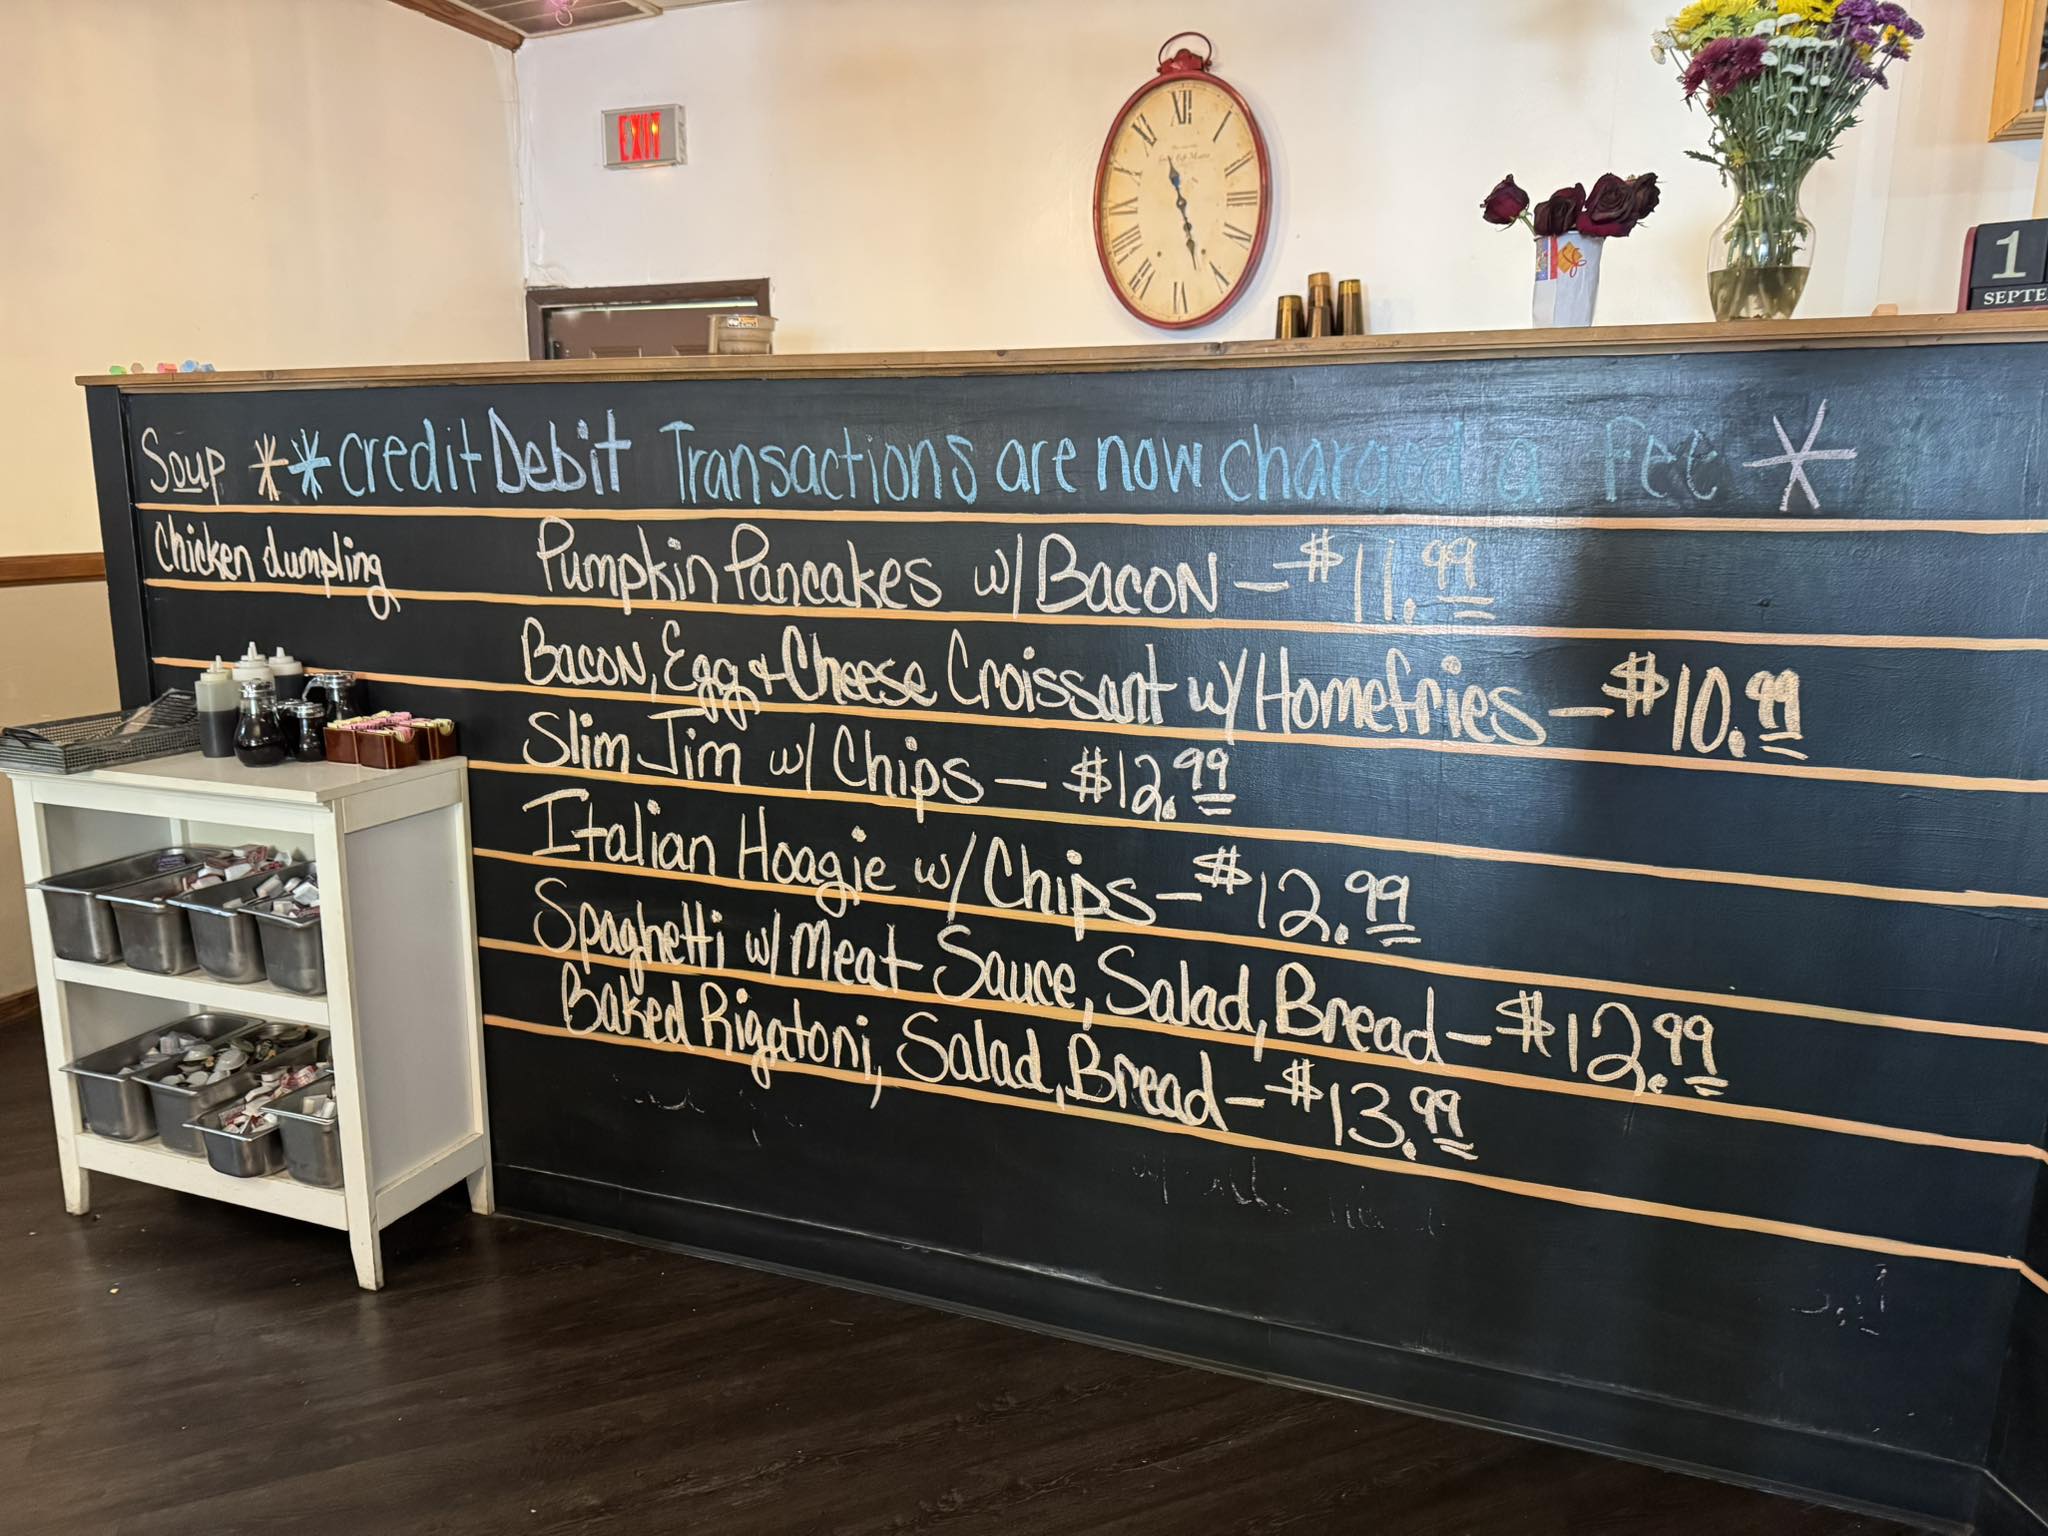 EXIT
1
SEPTE
Soup ** credit Debit Transactions are now charged a Fee *
Chicken dumpling
Pumpkin Pancakes w/ Bacon - $11.99
Bacon, Egg + Cheese Croissant w/ Homefries - $10.99
Slim Jim w/ Chips - $12.99
Italian Hoagie w/ Chips - $12.99
Spaghetti w/ Meat Sauce, Salad, Bread - $12.99
Baked Rigatoni, Salad, Bread - $13.99